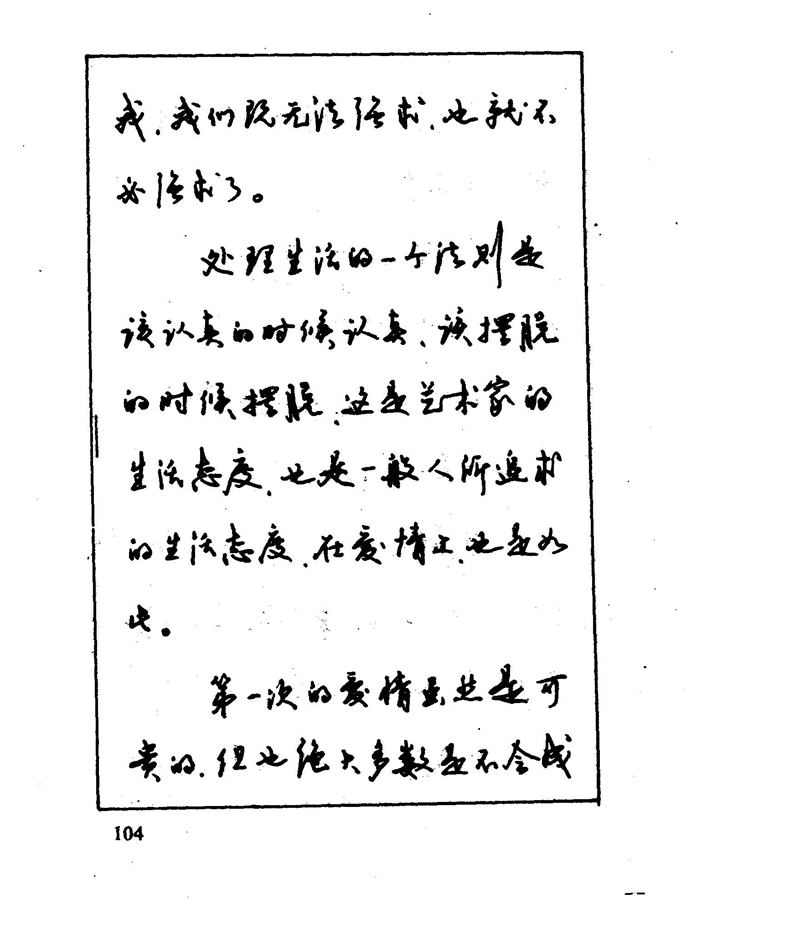 我，我们既无法强求，也就不
必强求了。
处理生活的一个法则是
该认真的时候认真，该摆脱
的时候摆脱，这是艺术家的
生活态度，也是一般人所追求
的生活态度，在爱情上，也是如
此。
第一次的爱情虽然是可
贵的，但也绝大多数是不会成
104